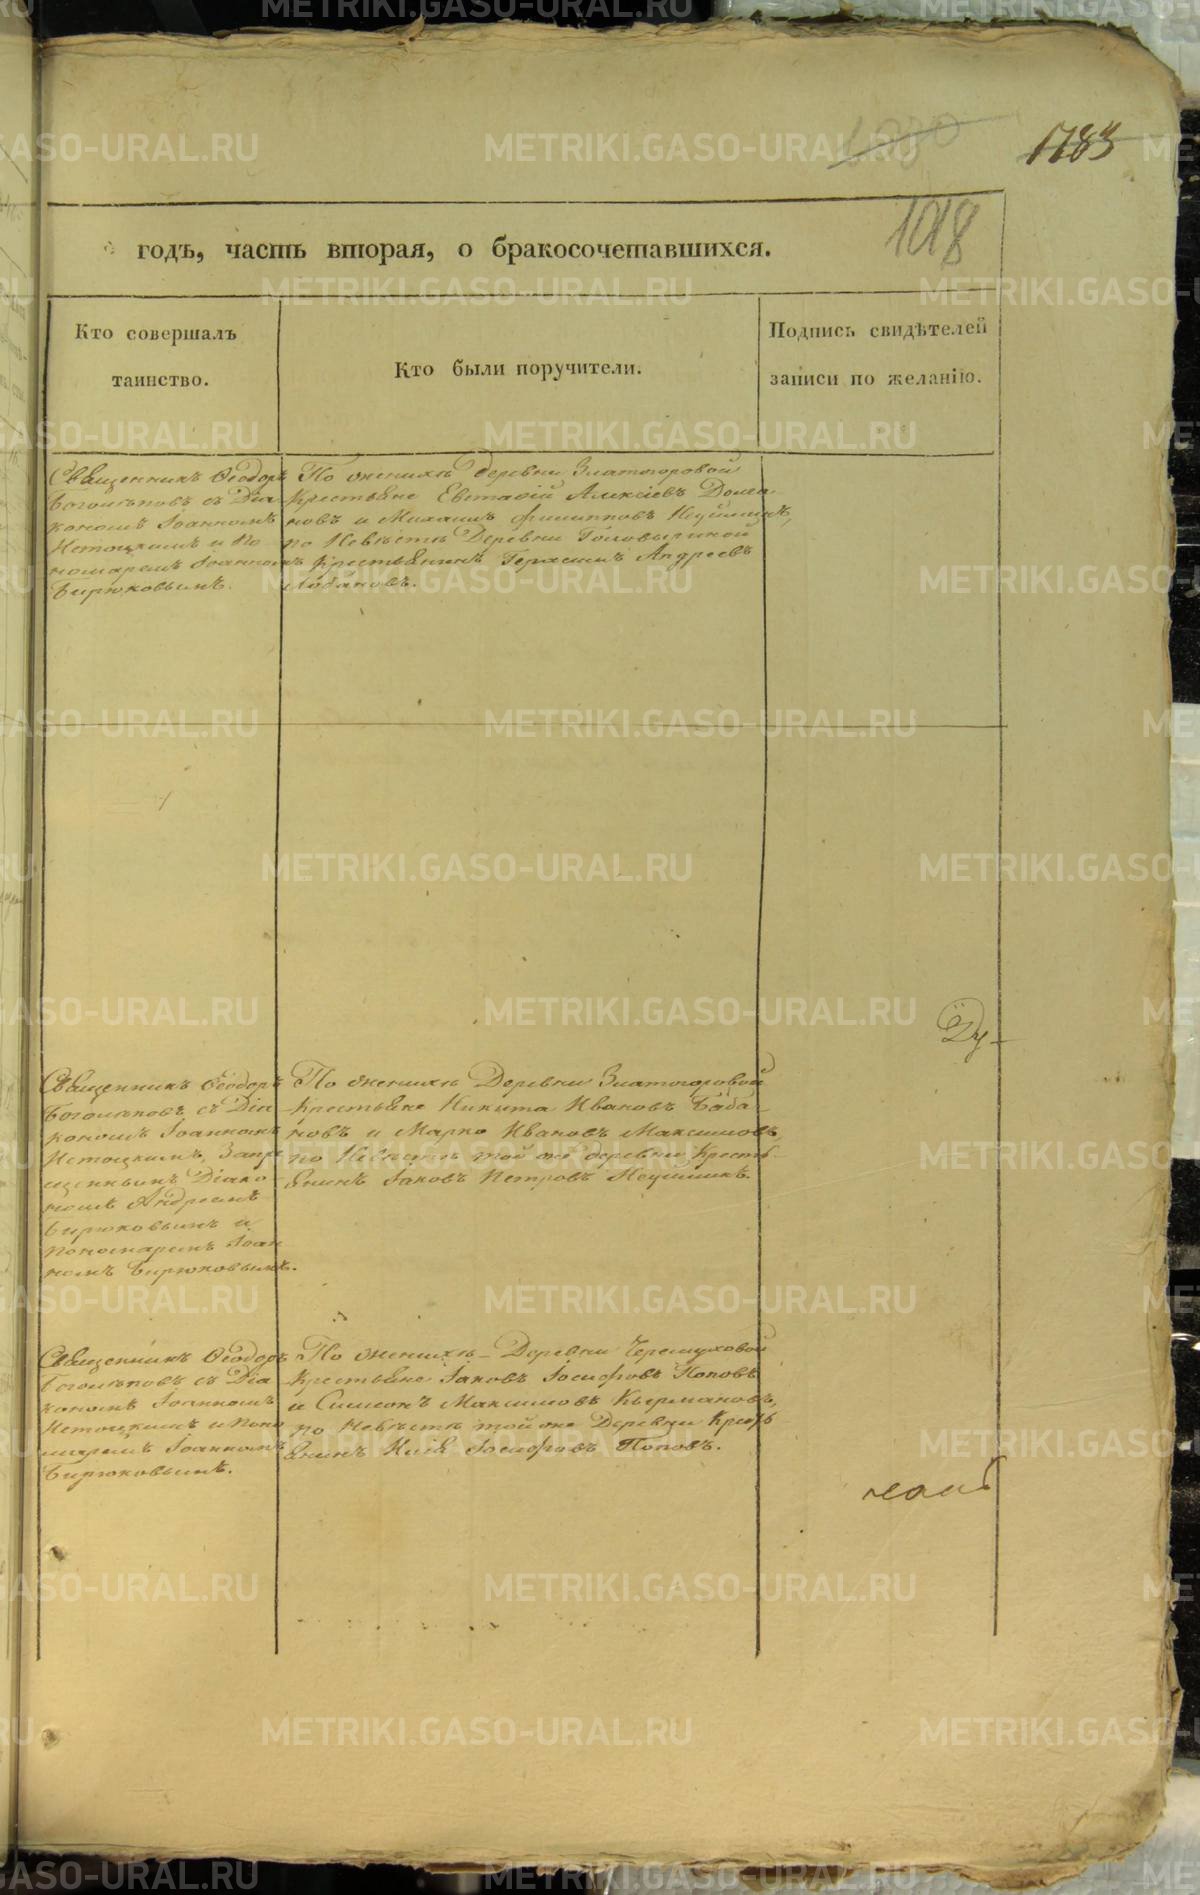 1783
1018
годъ, часть вторая, о бракосочетавшихся.
Кто совершалъ
таинство.
Кто были поручители.
Подпись свидѣтелей
записи по желанію.
Священникъ Ѳеодоръ
Боголѣповъ съ Діа
кономъ Іоанномъ
Истоцкимъ и по
номаремъ Іоанномъ
Бирюковымъ.
По женихѣ Деревни Златогоровой
Крестьяне Евстафій Алексіевъ Долга
новъ и Михаилъ Филипповъ Неуйминъ,
по Невѣстѣ Деревни Головыриной
Крестьянинъ Герасимъ Андреевъ
Лобановъ.
Священникъ Ѳеодоръ
Боголѣповъ съ Діа
кономъ Іоанномъ
Истоцкимъ, Запре
щеннымъ Діако
номъ Андреемъ
Бирюковымъ и
пономаремъ Іоан
номъ Бирюковымъ.
По женихѣ Деревни Златогоровой
Крестьяне Никита Ивановъ Баба
новъ и Марко Ивановъ Максимовъ,
по Невѣстѣ той же деревни Кресть
янинъ Іаковъ Петровъ Неуйминъ.
Священникъ Ѳеодоръ
Боголѣповъ съ Діа
кономъ Іоанномъ
Истоцкимъ и поно
маремъ Іоанномъ
Бирюковымъ.
По женихѣ Деревни Черемуховой
Крестьяне Іаковъ Іосифовъ Поповъ
и Симеонъ Максимовъ
по Невѣстѣ той же Деревни Кресть
янинъ Илія Іосифовъ Поповъ.
METRIKI.GASO-URAL.RU